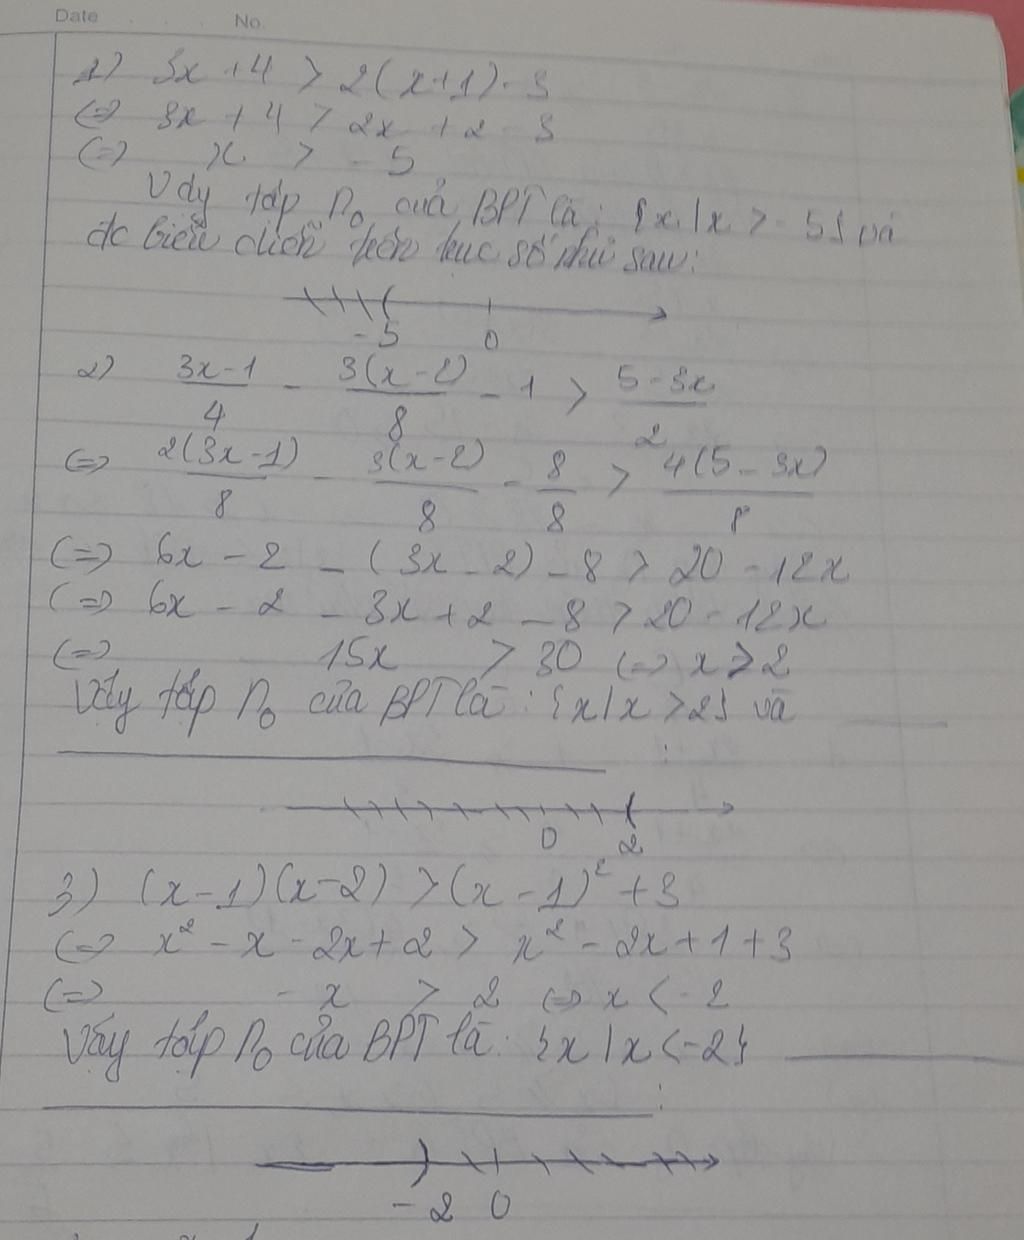 Date No.
1) 3x + 4 > 2(x+1) - 3
(=) 3x + 4 > 2x + 2 - 3
(=) x > - 5
Vậy tập n₀ của BPT là: {x | x > - 5} và
đc biểu diễn trên trục số như sau:
-5 0
2) (3x-1)/4 - 3(x-2)/8 - 1 > (5-3x)/2
(=) 2(3x-1)/8 - 3(x-2)/8 - 8/8 > 4(5-3x)/8
(=) 6x - 2 - (3x - 2) - 8 > 20 - 12x
(=) 6x - 2 - 3x + 2 - 8 > 20 - 12x
(=) 15x > 30 (=) x > 2
Vậy tập n₀ của BPT là: {x | x > 2} và
:
0 2
3) (x-1)(x-2) > (x-1)² + 3
(=) x² - x - 2x + 2 > x² - 2x + 1 + 3
(=) - x > 2 (=) x < -2
Vậy tập n₀ của BPT là: {x | x < -2}
:
-2 0